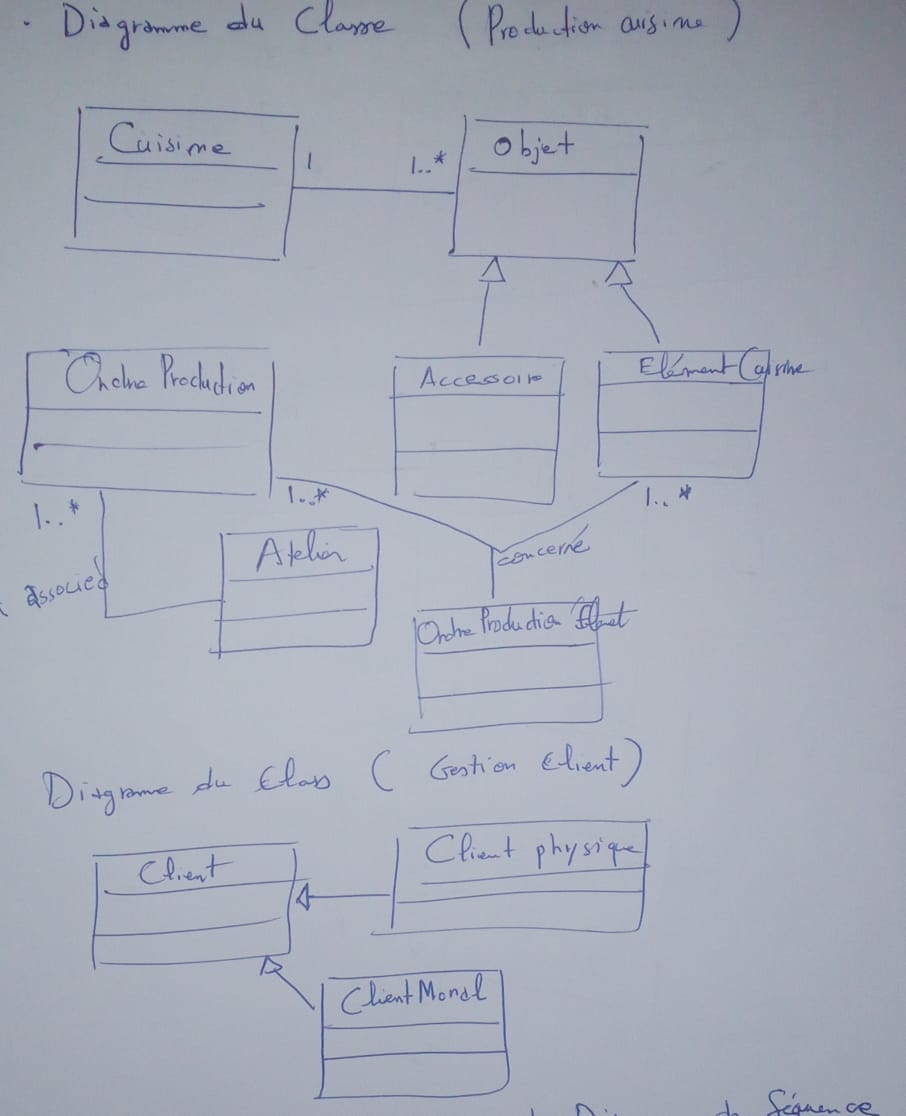 . Diagramme du Classe ( Production cuisine )
Cuisine
1
1..*
Objet
Ordre Production
Accessoire
Elément Cuisine
1..*
1..*
1..*
associed
Atelier
concerné
Ordre Production
Diagrame du Class ( Gestion Client )
Client
Client physique
Client Moral
Séquence